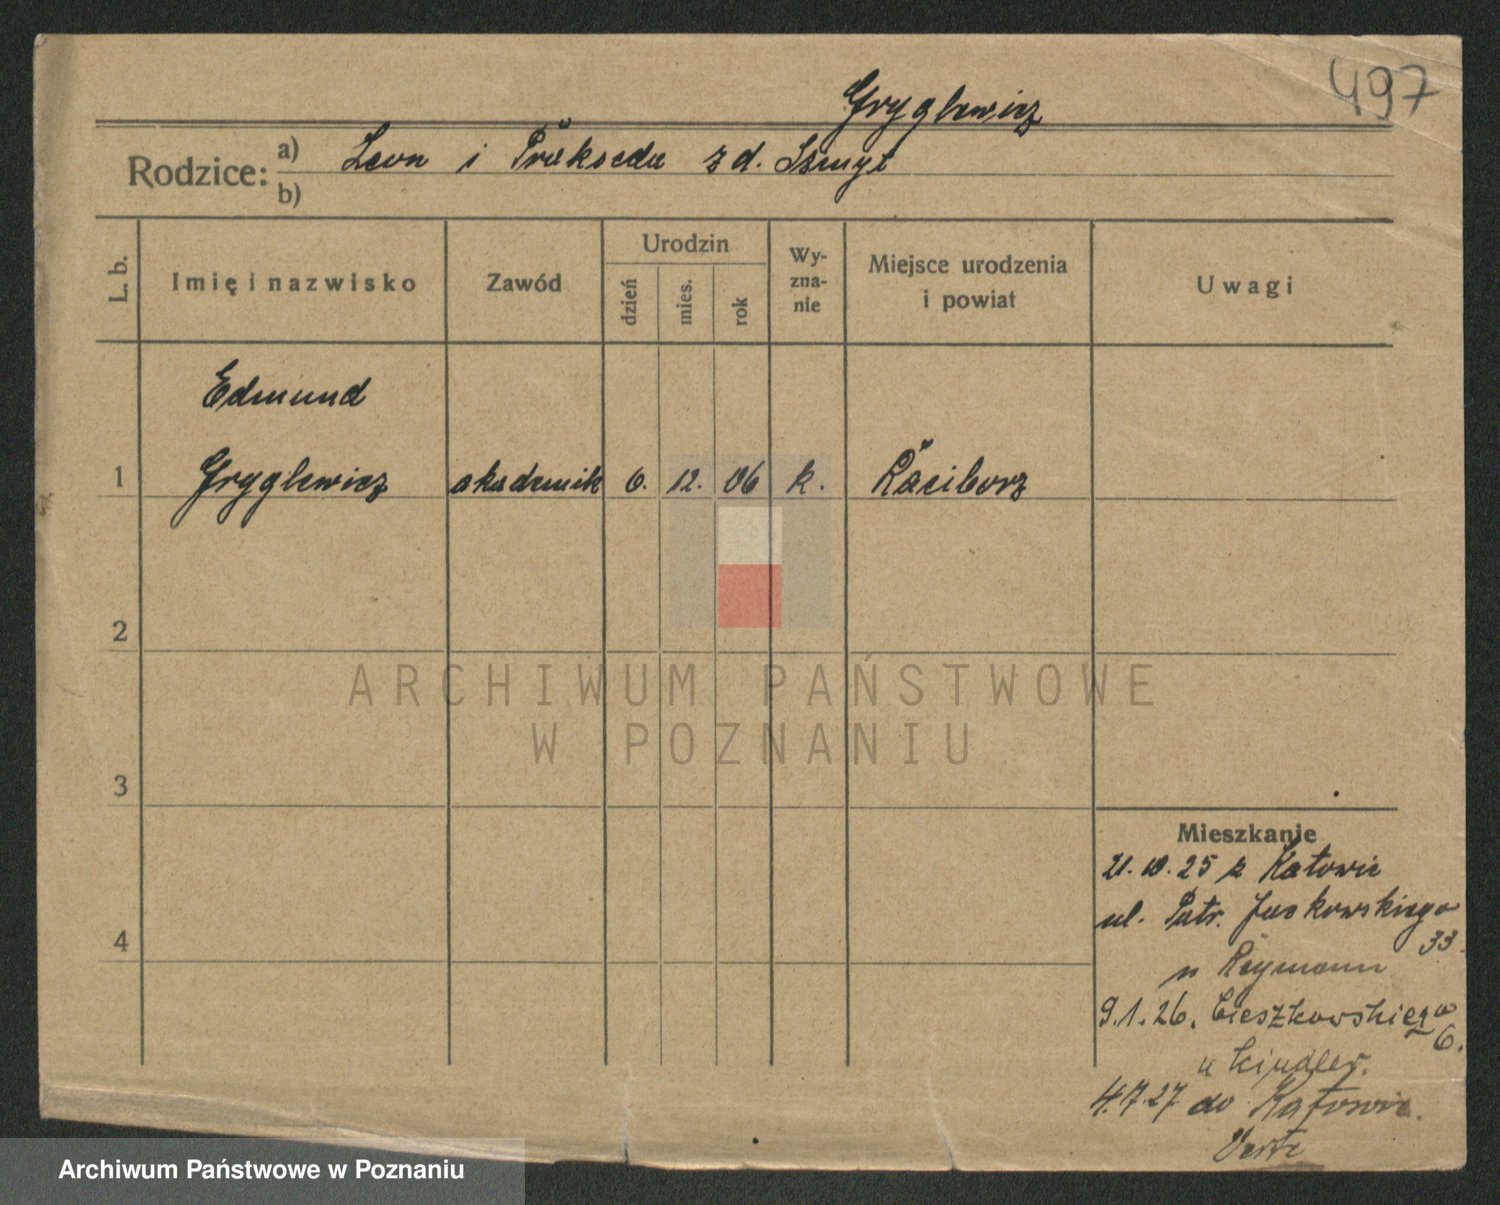 497
Gryglewicz
Rodzice: a) Leon i Prakseda z d. Szmyt
b)
L. b. Imię i nazwisko Zawód Urodzin dzień mies. rok Wyznanie Miejsce urodzenia i powiat Uwagi
Edmund
1 Gryglewicz akademik 6. 12. 06 k. Racibórz
2
ARCHIWUM PAŃSTWOWE
W POZNANIU
3
Mieszkanie
21.10.25 z Katowic
ul. Patr. Jackowskiego
4
33.
u Reymann
9.1.26. Cieszkowskiego
6.
u
4.7.27 do Katowic.
Verte
Archiwum Państwowe w Poznaniu